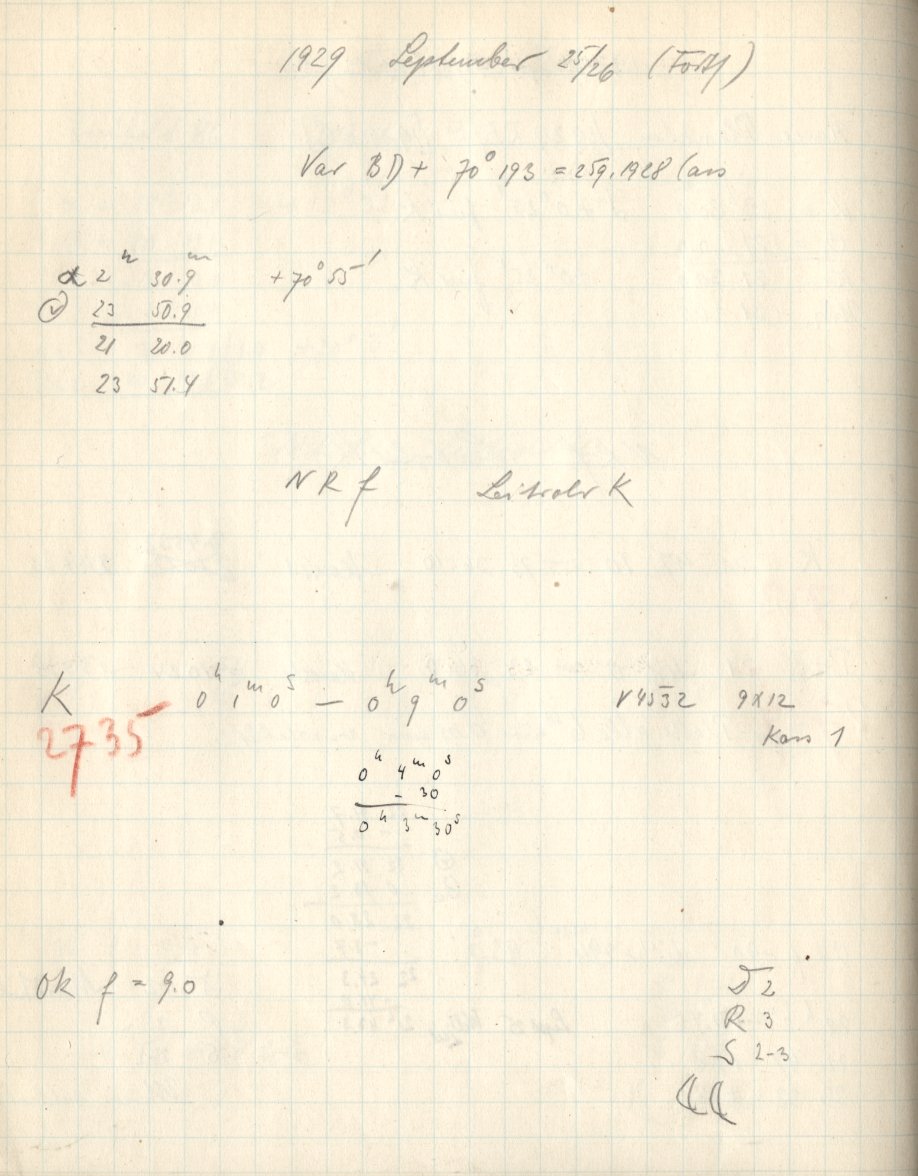 1929 September 25/26 (Forts)
Var BD + 70° 193 = 259.1928 Cas
α 2ʰ 30.9ᵐ +70° 55'
23 50.9
21 20.0
23 51.4
N R f Leitrohr K
K 0ʰ 1ᵐ 0ˢ — 0ʰ 9ᵐ 0ˢ V4532 9X12
2735 Kass 1
0ʰ 4ᵐ 0ˢ
- 30
0ʰ 3ᵐ 30ˢ
Ok f = 9.0
D 2
R 3
S 2-3